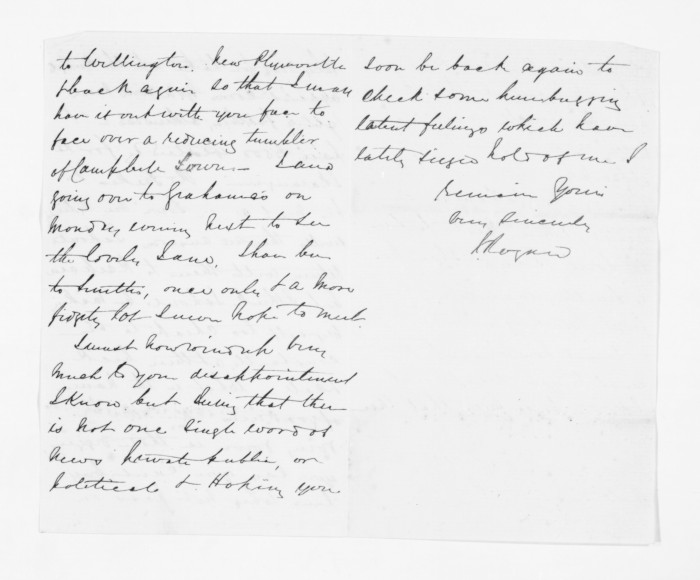 to Wellington. New Plymouth
& back again so that I may
have it out with you face to
face over a reducing tumbler
of Campbell Towns - I am
going over to Grahames on
Monday evening next to see
the lovely Jane, I have been
to Smiths, once only & a more
fidgety lot I never hope to meet.
I must now wind up very
much to your disappointment
I know but seeing that there
is not one single word of
news private public, or
political & Hoping you
soon be back again to
check some humbugging
latent feelings which have
lately seized hold of me I
remain Yours
very sincerely
J Rogan